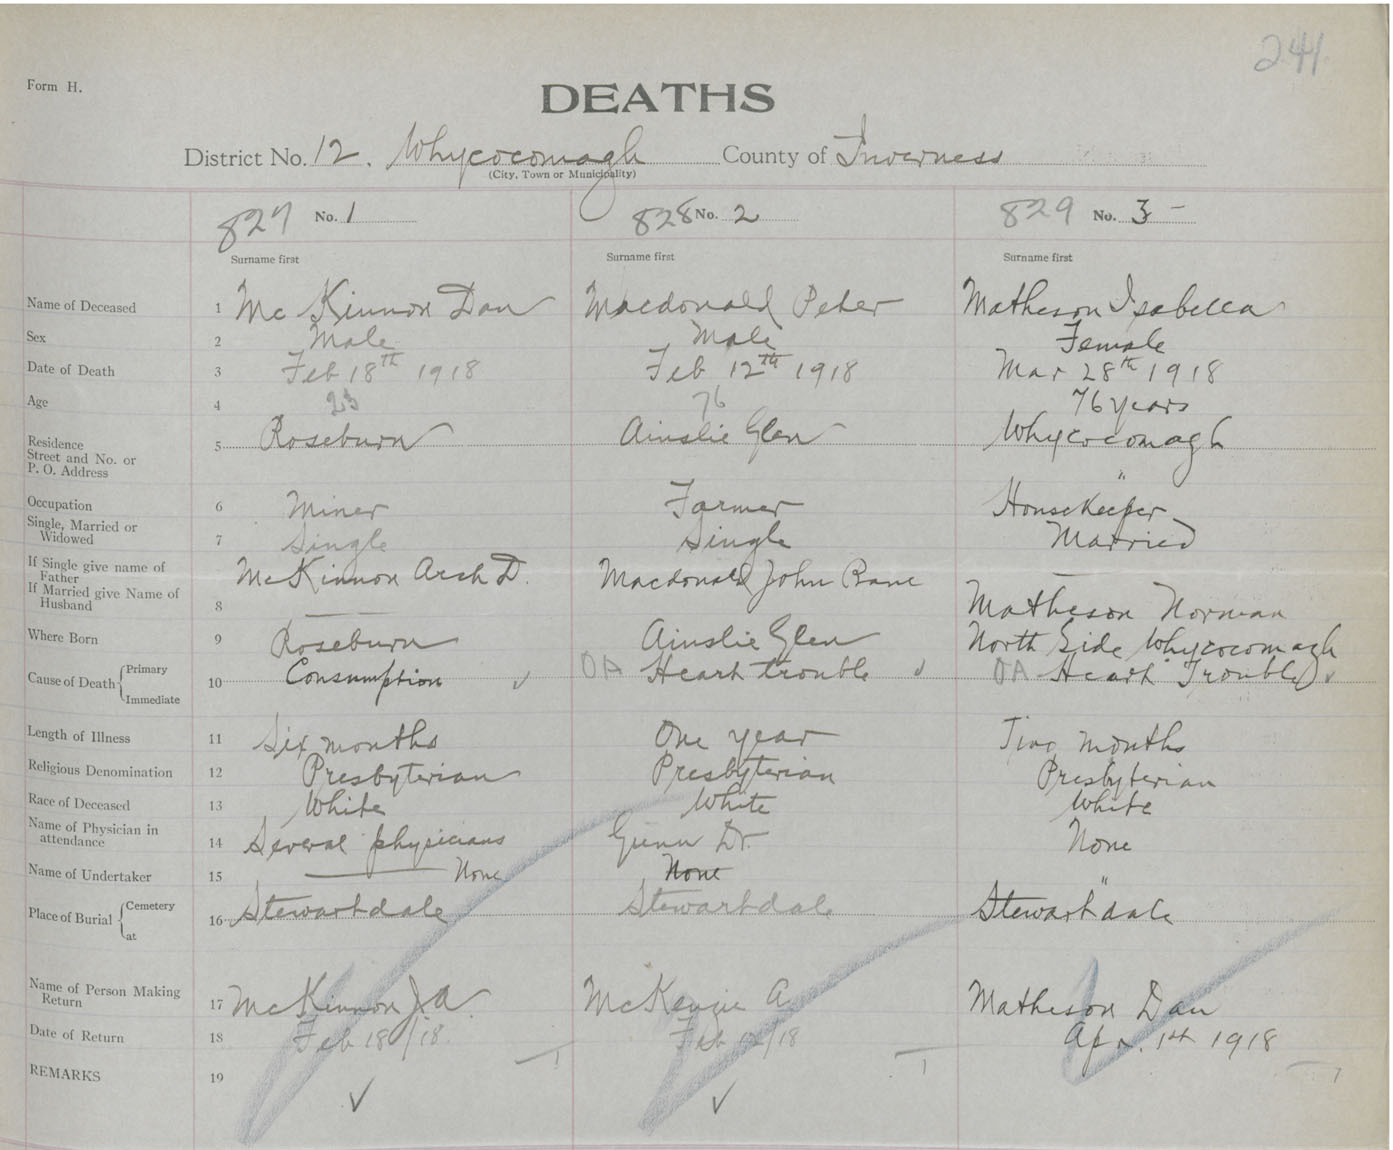 244
Form H.
DEATHS
District No. 12. Whycocomagh County of Inverness
(City, Town or Municipality)
827 No. 1 828 No. 2 829 No. 3 -
Surname first Surname first Surname first
Name of Deceased 1 McKinnon Dan Macdonald Peter Matheson Isabella
Sex 2 Male Male Female
Date of Death 3 Feb 18th 1918 Feb 12th 1918 Mar 28th 1918
Age 4 23 76 76 years
Residence
Street and No. or
P. O. Address
5 Roseburn Ainslie Glen Whycocomagh
"
Occupation 6 Miner Farmer Housekeeper
Single, Married or
Widowed 7 Single Single Married
If Single give name of
Father McKinnon Arch D. Macdonald John Bane —
If Married give Name of
Husband 8 — Matheson Norman
Where Born 9 Roseburn Ainslie Glen North Side Whycocomagh
Cause of Death { Primary
Immediate
10 Consumption ✓ OA Heart trouble ✓ OA Heart Trouble ✓
Length of Illness 11 Six months One year Two months
Religious Denomination 12 Presbyterian Presbyterian Presbyterian
Race of Deceased 13 White White White
Name of Physician in
attendance 14 Several physicians Gunn Dr. None
Name of Undertaker 15 — None None "
Place of Burial { Cemetery
at
16 Stewartdale Stewartdale Stewartdale
Name of Person Making
Return 17 McKinnon J. A. McKenzie A. Matheson Dan
Date of Return 18 Feb 18/18 Feb 12/18 Apr. 1st 1918
REMARKS 19 ✓ ✓